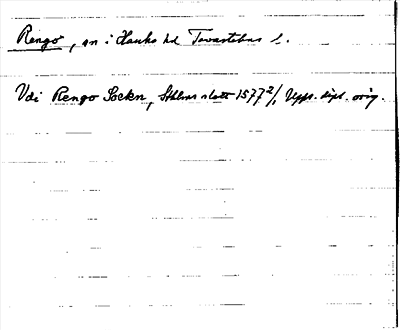 Rengo, sn i Hauho hd Tavastehus l.
Vdi Rengo Sockn, Sthlms slott 1577 2/1 Upps. dipl. orig.